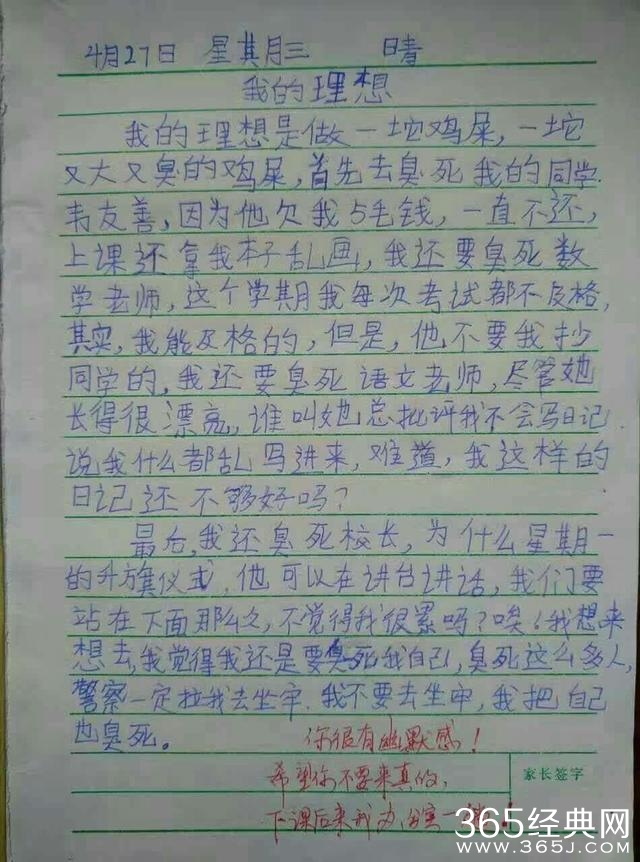 4月27日 星其月三 晴
我的理想
我的理想是做一坨鸡屎,一坨
又大又臭的鸡屎,首先去臭死我的同学
韦友善,因为他欠我5毛钱,一直不还,
上课还拿我本子乱画,我还要臭死数
学老师,这个学期我每次考试都不及格,
其实,我能及格的,但是,他不要我抄
同学的,我还要臭死语文老师,尽管她
长得很漂亮,谁叫她总批评我不会写日记
说我什么都乱写进来,难道,我这样的
日记还不够好吗?
最后,我还臭死校长,为什么星期一
的升旗仪式,他可以在讲台讲话,我们要
站在下面那么久,不觉得我很累吗?唉!我想来
想去,我觉得我还是要臭死我自己,臭死这么多人,
警察一定拉我去坐牢.我不要去坐牢,我把自己
也臭死。
你很有幽默感!
希望你不要来真的,
家长签字
下课后来我办公室一趟!
365经典网
WWW.365J.COM